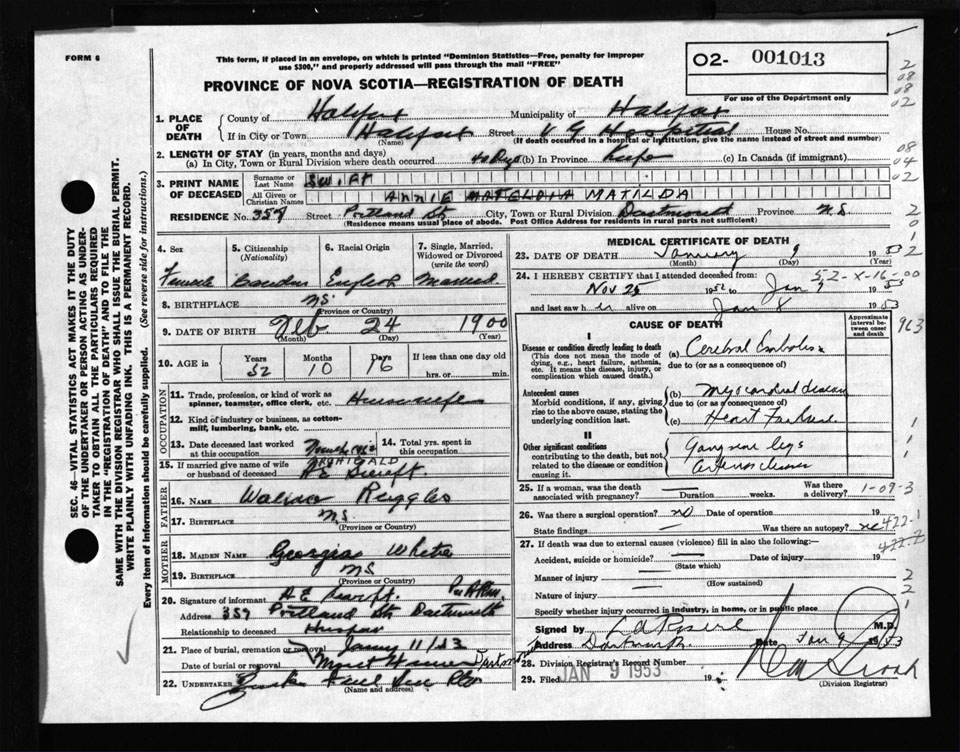 FORM 6
This form, if placed in an envelope, on which is printed "Dominion Statistics—Free, penalty for improper
use $300," and properly addressed will pass through the mail "FREE"
O2- 001013
For use of the Department only
PROVINCE OF NOVA SCOTIA—REGISTRATION OF DEATH
1. PLACE OF DEATH
County of Halifax Municipality of Halifax
If in City or Town Halifax Street V G Hospital House No.
(Name) (If death occurred in a hospital or institution, give the name instead of street and number)
2. LENGTH OF STAY (in years, months and days)
(a) In City, Town or Rural Division where death occurred (b) In Province Life (c) In Canada (if immigrant)
3. PRINT NAME OF DECEASED
Surname or Last Name Swift
All Given or Christian Names ANNIE MATILDA
RESIDENCE No. 359 Street Portland St. City, Town or Rural Division Dartmouth Province N.S.
(Residence means usual place of abode. Post Office Address for Residents in rural parts not sufficient)
4. Sex
Female
5. Citizenship (Nationality)
6. Racial Origin
English
7. Single, Married, Widowed or Divorced (write the word)
Married
8. BIRTHPLACE NS
(Province or Country)
9. DATE OF BIRTH Feb 24 1900
(Month) (Day) (Year)
10. AGE in Years Months Days If less than one day old
52 10 16 hrs. or min.
OCCUPATION
11. Trade, profession, or kind of work as spinner, teamster, office clerk, etc. Housewife
12. Kind of industry or business, as cotton-mill, lumbering, bank, etc.
13. Date deceased last worked at this occupation
14. Total yrs. spent in this occupation
15. If married give name of wife or husband of deceased
FATHER
16. NAME Wallace Ruggles
17. BIRTHPLACE NS
(Province or Country)
MOTHER
18. MAIDEN NAME White
19. BIRTHPLACE NS
(Province or Country)
20. Signature of informant
Address 359 Portland St Dartmouth
Relationship to deceased
21. Place of burial, cremation or removal
Date of burial or removal
22. UNDERTAKER
(Name and address)
MEDICAL CERTIFICATE OF DEATH
23. DATE OF DEATH January 9 1953
(Month) (Day)
24. I HEREBY CERTIFY that I attended deceased from:
52-X-16-00
Nov 25 1952 to Jan 9 1953
and last saw her alive on Jan 8 1953
CAUSE OF DEATH
Approximate interval between onset and death
963
I
Disease or condition directly leading to death
(This does not mean the mode of dying, e.g., heart failure, asthenia, etc. It means the disease, injury, or complication which caused death.)
(a) Cerebral
due to (or as a consequence of)
Antecedent causes
Morbid conditions, if any, giving rise to the above cause, stating the underlying condition last.
(b) Myocardial disease
due to (or as a consequence of)
(c) Heart Failure
II
Other significant conditions
contributing to the death, but not related to the disease or condition causing it.
Gangrene legs
25. If a woman, was the death associated with pregnancy? Duration weeks. Was there a delivery?
1-09-3
26. Was there a surgical operation? no Date of operation
State findings Was there an autopsy? no
422-1
27. If death was due to external causes (violence) fill in also the following:—
Accident, suicide or homicide? Date of injury 19
(State which)
Manner of injury
(How sustained)
Nature of injury
Specify whether injury occurred in industry, in home, or in public place
Signed by M.D.
Address Dartmouth Date Jan 9 1953
28. Division Registrar's Record Number
29. Filed JAN 9 1953 19
(Division Registrar)
SEC. 46—VITAL STATISTICS ACT MAKES IT THE DUTY
OF THE UNDERTAKER OR PERSON ACTING AS UNDER-
TAKER TO OBTAIN ALL THE PARTICULARS REQUIRED
IN THE "REGISTRATION OF DEATH" AND TO FILE THE
SAME WITH THE DIVISION REGISTRAR WHO SHALL ISSUE THE BURIAL PERMIT.
WRITE PLAINLY WITH UNFADING INK. THIS IS A PERMANENT RECORD.
Every item of Information should be carefully supplied. (See reverse side for instructions.)